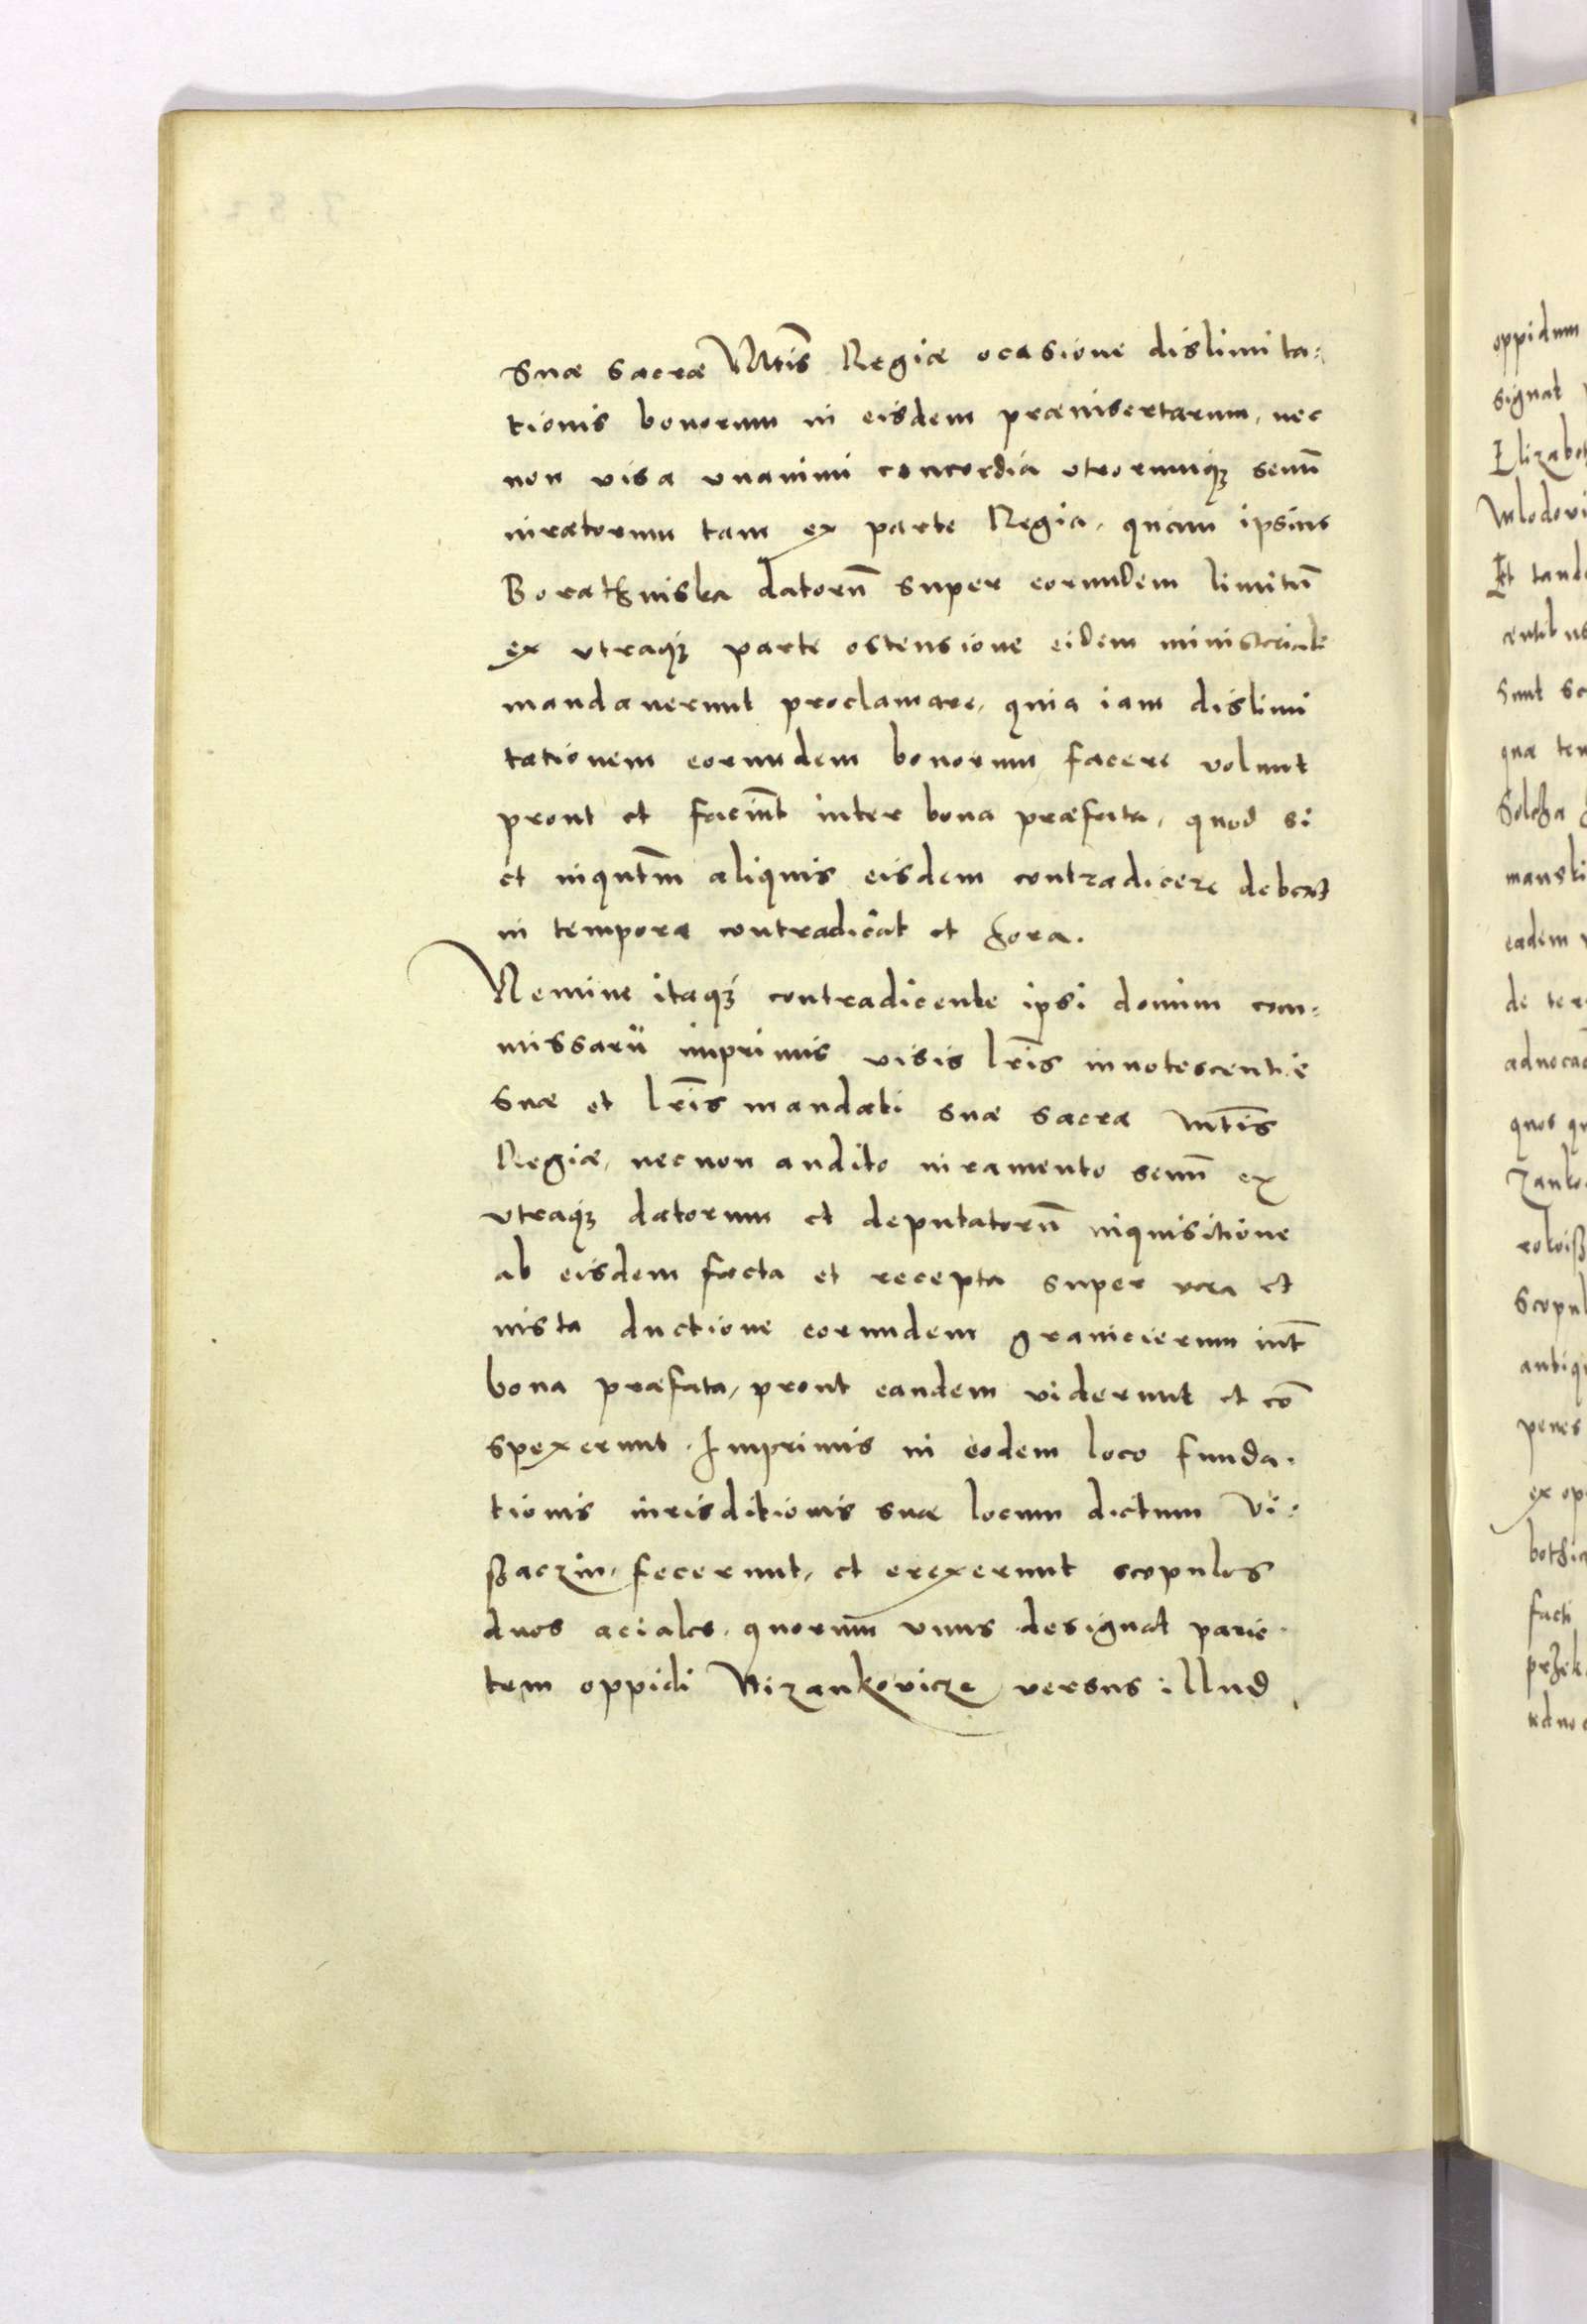 Suæ Sacræ Mtis Regiæ ocasione dislimita:
tionis bonorum in eisdem præinsertarum, nec
non visa vnanimi concordia vtrorumq; senũ
iuratorum tam ex parte Regia, quam ipsius
datorũ super eorundem limitũ
ex vtraq; parte ostensione eidem ministeriali
mandauerunt proclamare, quia iam dislimi
tationem eorundem bonorum facere volunt
prout et faciũt inter bona præfata, quod si
et inqutm aliquis eisdem contradicere deberet
in tempore contradicat et hora.
Nemine itaq; contradicente ipsi domini com:
missarii imprimis visis lris innotescentiæ
Suæ et lris mandati suæ sacræ mtis
Regiæ, necnon audito iuramento senũ ex
vtraq; datorum et deputatorũ inquisitione
ab eisdem facta et recepta super vera et
iusta ductione eorundem granicierum int
bona præfata, prout eandem viderunt et cõ
spexerunt. Imprimis in eodem loco funda:
tionis iurisditionis suæ locum dictum Vi:
ßaczin, fecerunt, et erexerunt scopulos
duos aciales, quorum vnus designat parie:
tem oppidi Nizankovicze versus illud
oppidum
signat
Et tand
sunt
quæ
eadem
de
quos
penes
facti